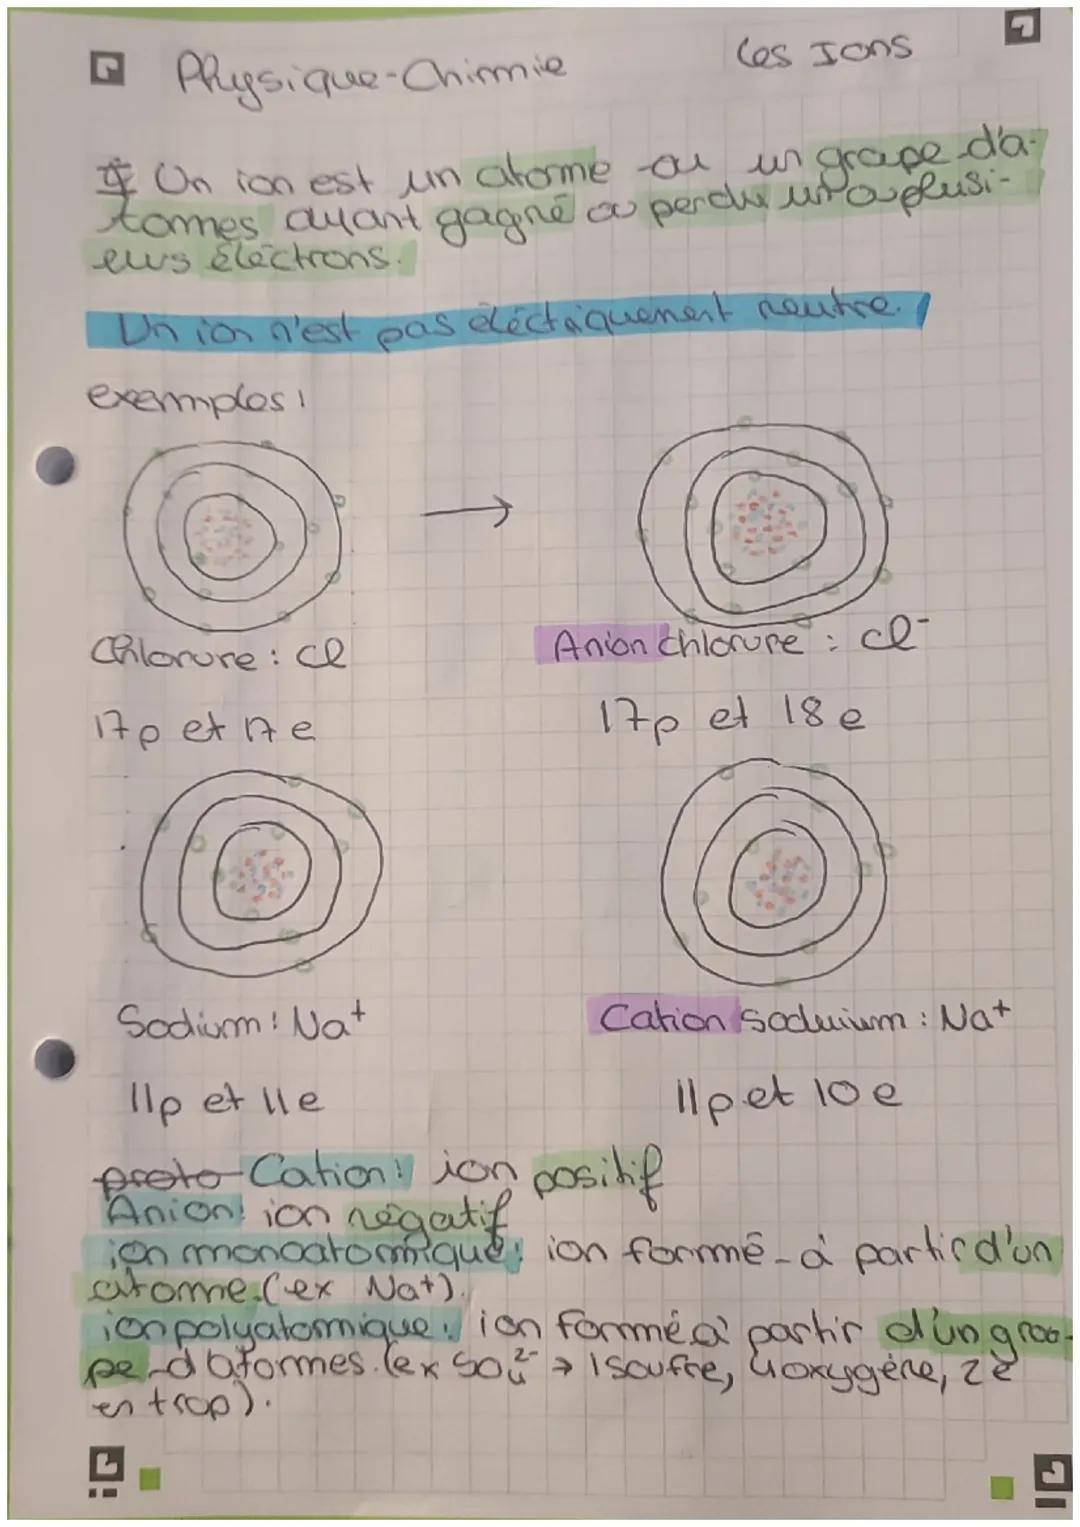 Physique-Chimie
Les Ions
Un ion est un atome ou un groupe d'a-
tomes ayant gagné ou perdu un ou plusi-
eurs éléctrons.
Un ion n'est pas éléctriquement neutre.
exemples :
Chlorure : Cl
Anion chlorure : Cl⁻
17p et 17e
17p et 18e
Sodium : Na⁺
Cation soduium : Na⁺
11p et 11e
11p et 10e
proto Cation : ion positif
Anion : ion négatif
ion monoatomique : ion formé à partir d'un
atome. (ex Na⁺).
ion polyatomique : ion formé à partir d'un grou-
pe d'atomes. (ex SO₄²⁻ → 1 soufre, 4 oxygène, 2e
en trop).